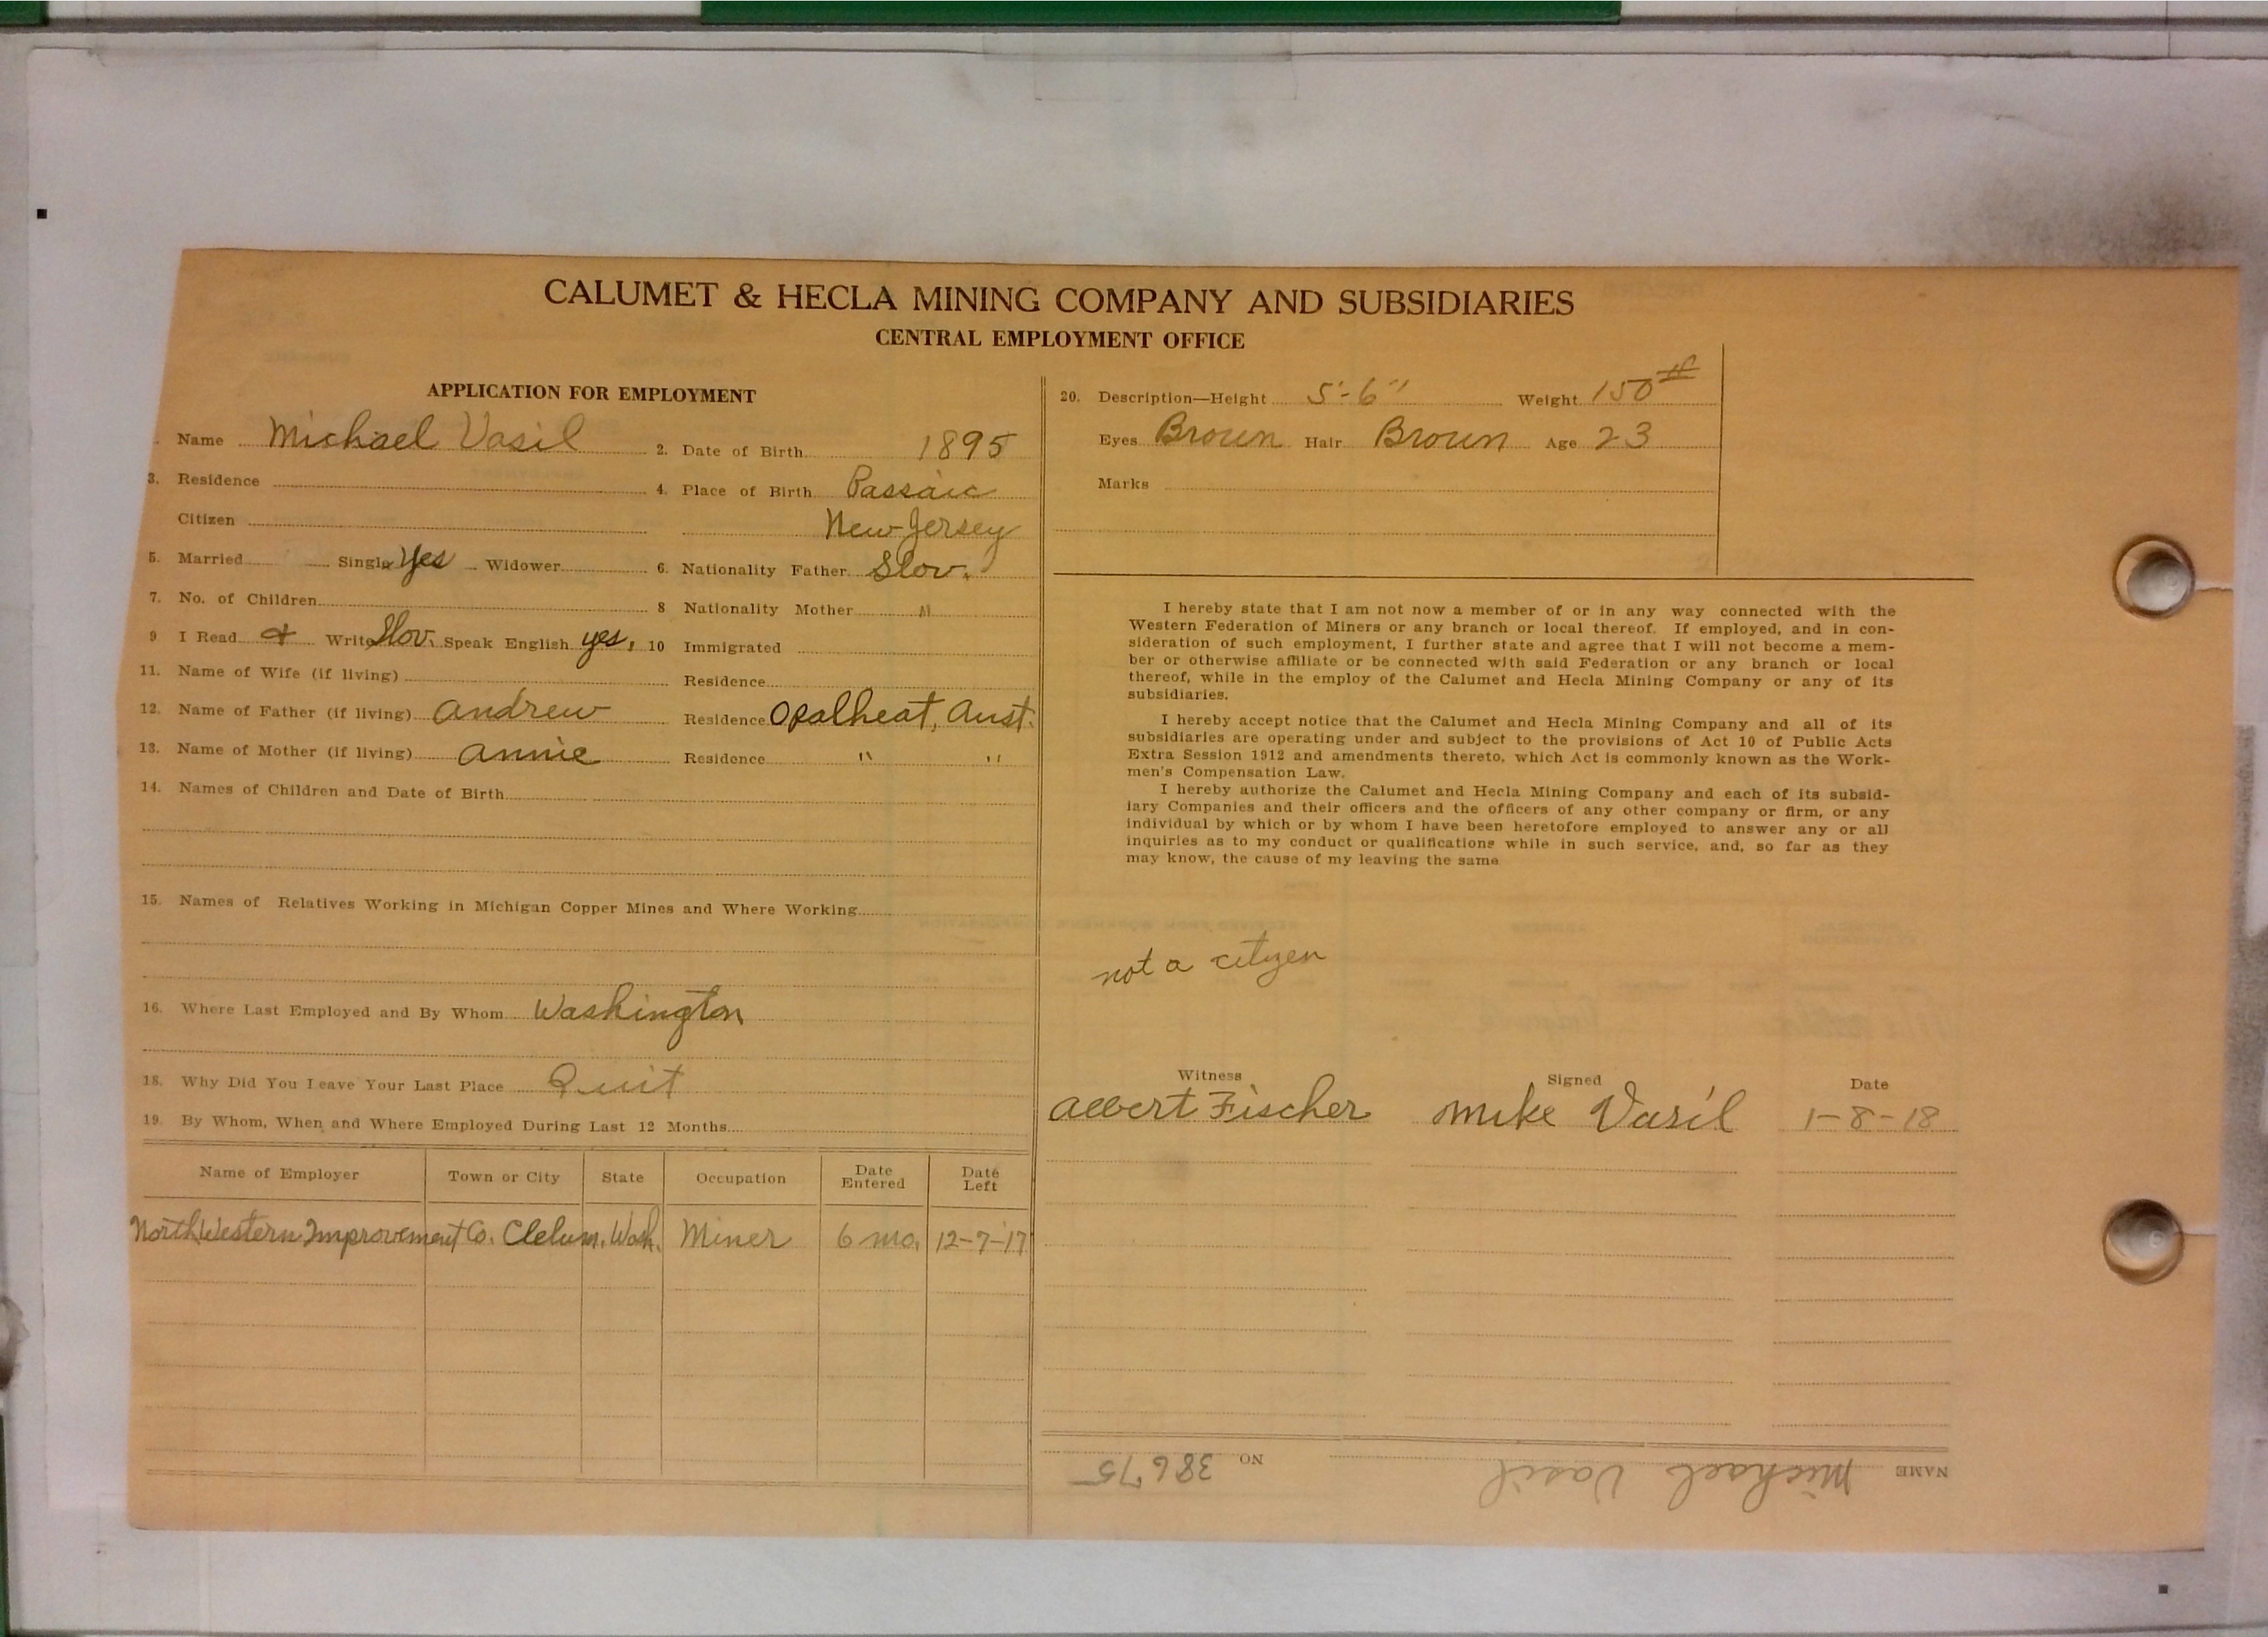 CALUMET & HECLA MINING COMPANY AND SUBSIDIARIES
CENTRAL EMPLOYMENT OFFICE
APPLICATION FOR EMPLOYMENT
Name Michael Vasil 2. Date of Birth 1895
3. Residence 4. Place of Birth Passaic
Citizen New Jersey
5. Married Single Yes Widower 6. Nationality Father Slov.
7. No. of Children 8 Nationality Mother "
9 I Read & Write Slov. Speak English yes, 10 Immigrated
11. Name of Wife (if living) Residence
12. Name of Father (if living) Andrew Residence Opalheat, Aust.
13. Name of Mother (if living) Annie Residence " "
14. Names of Children and Date of Birth
15. Names of Relatives Working in Michigan Copper Mines and Where Working
16. Where Last Employed and By Whom Washington
18. Why Did You Leave Your Last Place Quit
19. By Whom, When and Where Employed During Last 12 Months
Name of Employer Town or City State Occupation Date Entered Date Left
NorthWestern Improvement Co. Clelum, Wash. Miner 6 mo. 12-7-'17
20. Description—Height 5'-6" Weight 150#
Eyes Brown Hair Brown Age 23
Marks
I hereby state that I am not now a member of or in any way connected with the
Western Federation of Miners or any branch or local thereof. If employed, and in con-
sideration of such employment, I further state and agree that I will not become a mem-
ber or otherwise affiliate or be connected with said Federation or any branch or local
thereof, while in the employ of the Calumet and Hecla Mining Company or any of its
subsidiaries.
I hereby accept notice that the Calumet and Hecla Mining Company and all of its
subsidiaries are operating under and subject to the provisions of Act 10 of Public Acts
Extra Session 1912 and amendments thereto, which Act is commonly known as the Work-
men's Compensation Law.
I hereby authorize the Calumet and Hecla Mining Company and each of its subsid-
iary Companies and their officers and the officers of any other company or firm, or any
individual by which or by whom I have been heretofore employed to answer any or all
inquiries as to my conduct or qualifications while in such service, and, so far as they
may know, the cause of my leaving the same
not a citizen
Witness Signed Date
Albert Fischer Mike Vasil 1-8-18
NAME Michael Vasil NO 38675